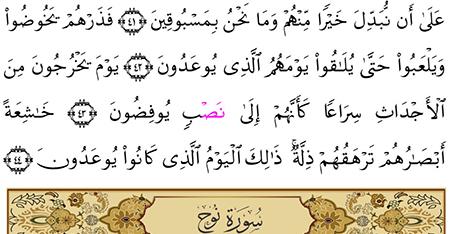 عَلَىٰ أَن نُّبَدِّلَ خَيۡرٗا مِّنۡهُمۡ وَمَا نَحۡنُ بِمَسۡبُوقِينَ ٤١ فَذَرۡهُمۡ يَخُوضُواْ
وَيَلۡعَبُواْ حَتَّىٰ يُلَٰقُواْ يَوۡمَهُمُ ٱلَّذِي يُوعَدُونَ ٤٢ يَوۡمَ يَخۡرُجُونَ مِنَ
ٱلۡأَجۡدَاثِ سِرَاعٗا كَأَنَّهُمۡ إِلَىٰ نَصۡبٖ يُوفِضُونَ ٤٣ خَٰشِعَةً
أَبۡصَٰرُهُمۡ تَرۡهَقُهُمۡ ذِلَّةٞۚ ذَٰلِكَ ٱلۡيَوۡمُ ٱلَّذِي كَانُواْ يُوعَدُونَ ٤٤
سُورَةُ نُوحٍ